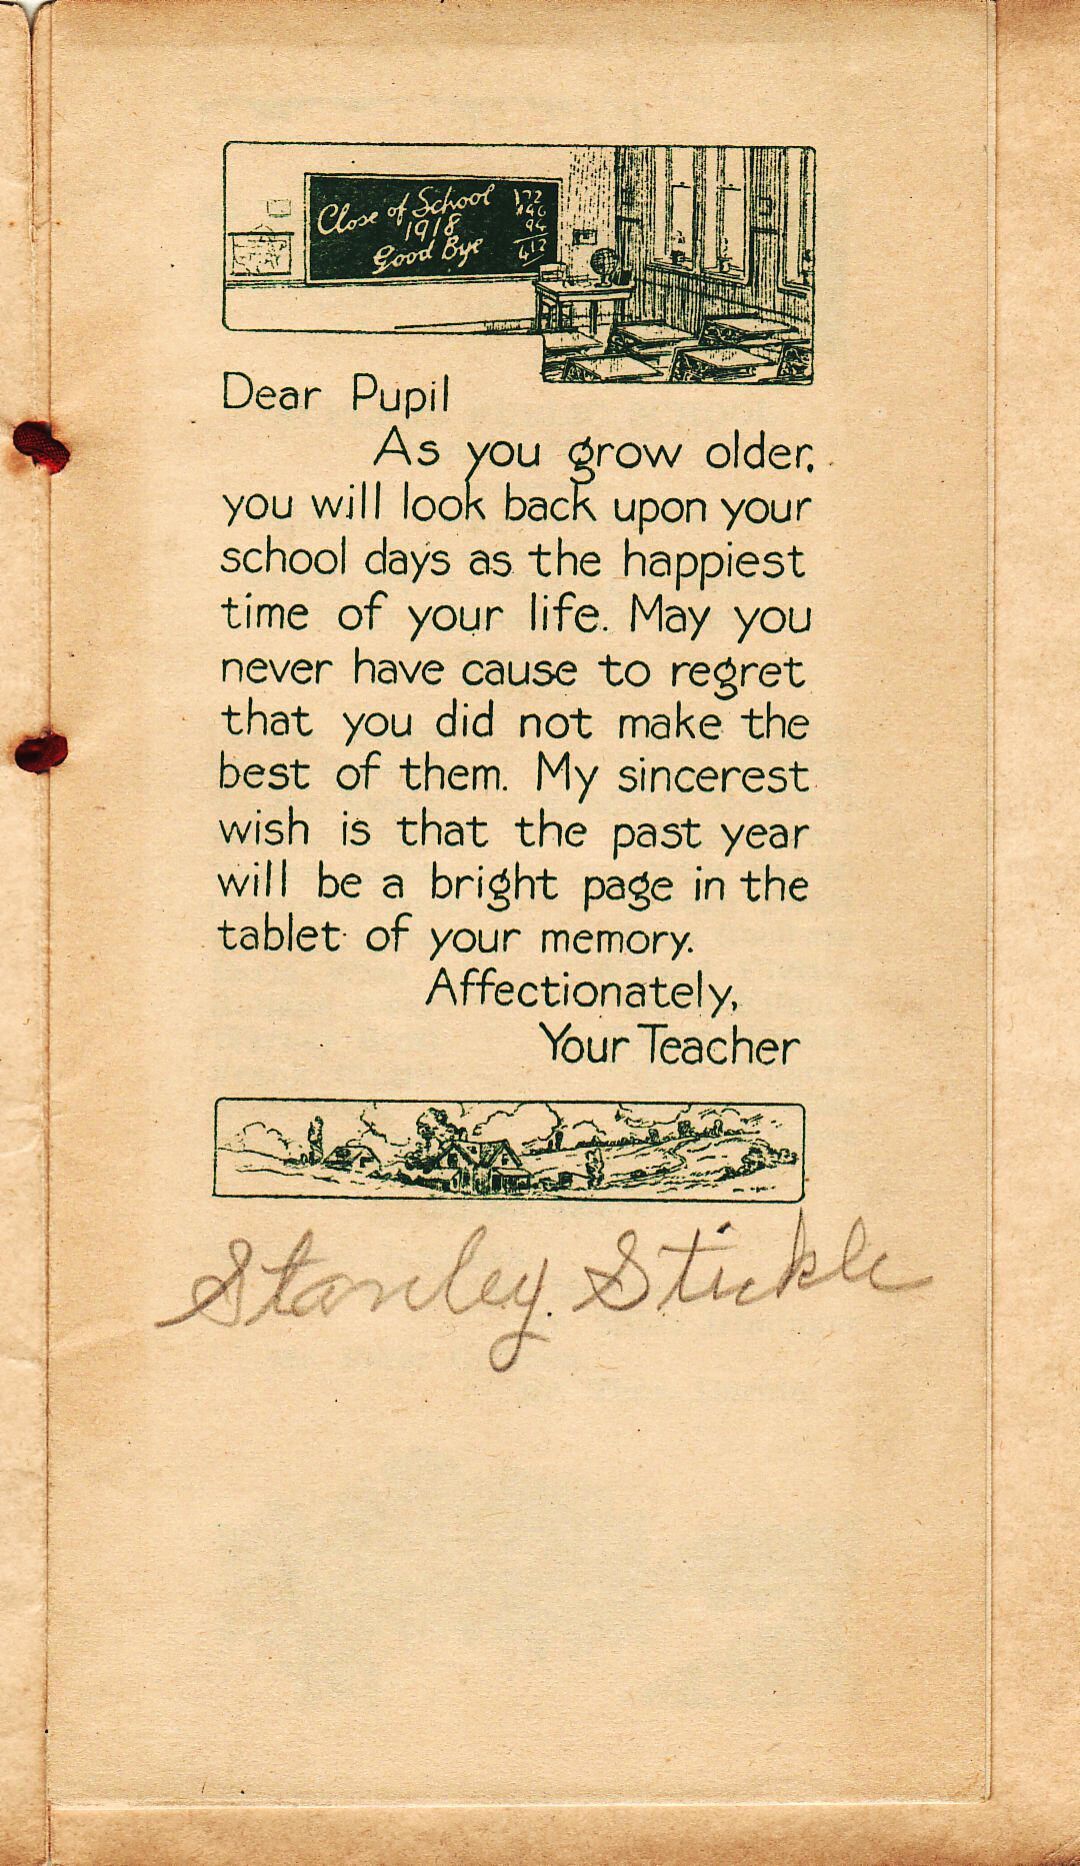 Close of School
1918
Good Bye
172
146
94
412
Dear Pupil
As you grow older,
you will look back upon your
school days as the happiest
time of your life. May you
never have cause to regret
that you did not make the
best of them. My sincerest
wish is that the past year
will be a bright page in the
tablet of your memory.
Affectionately,
Your Teacher
Stanley Stickle